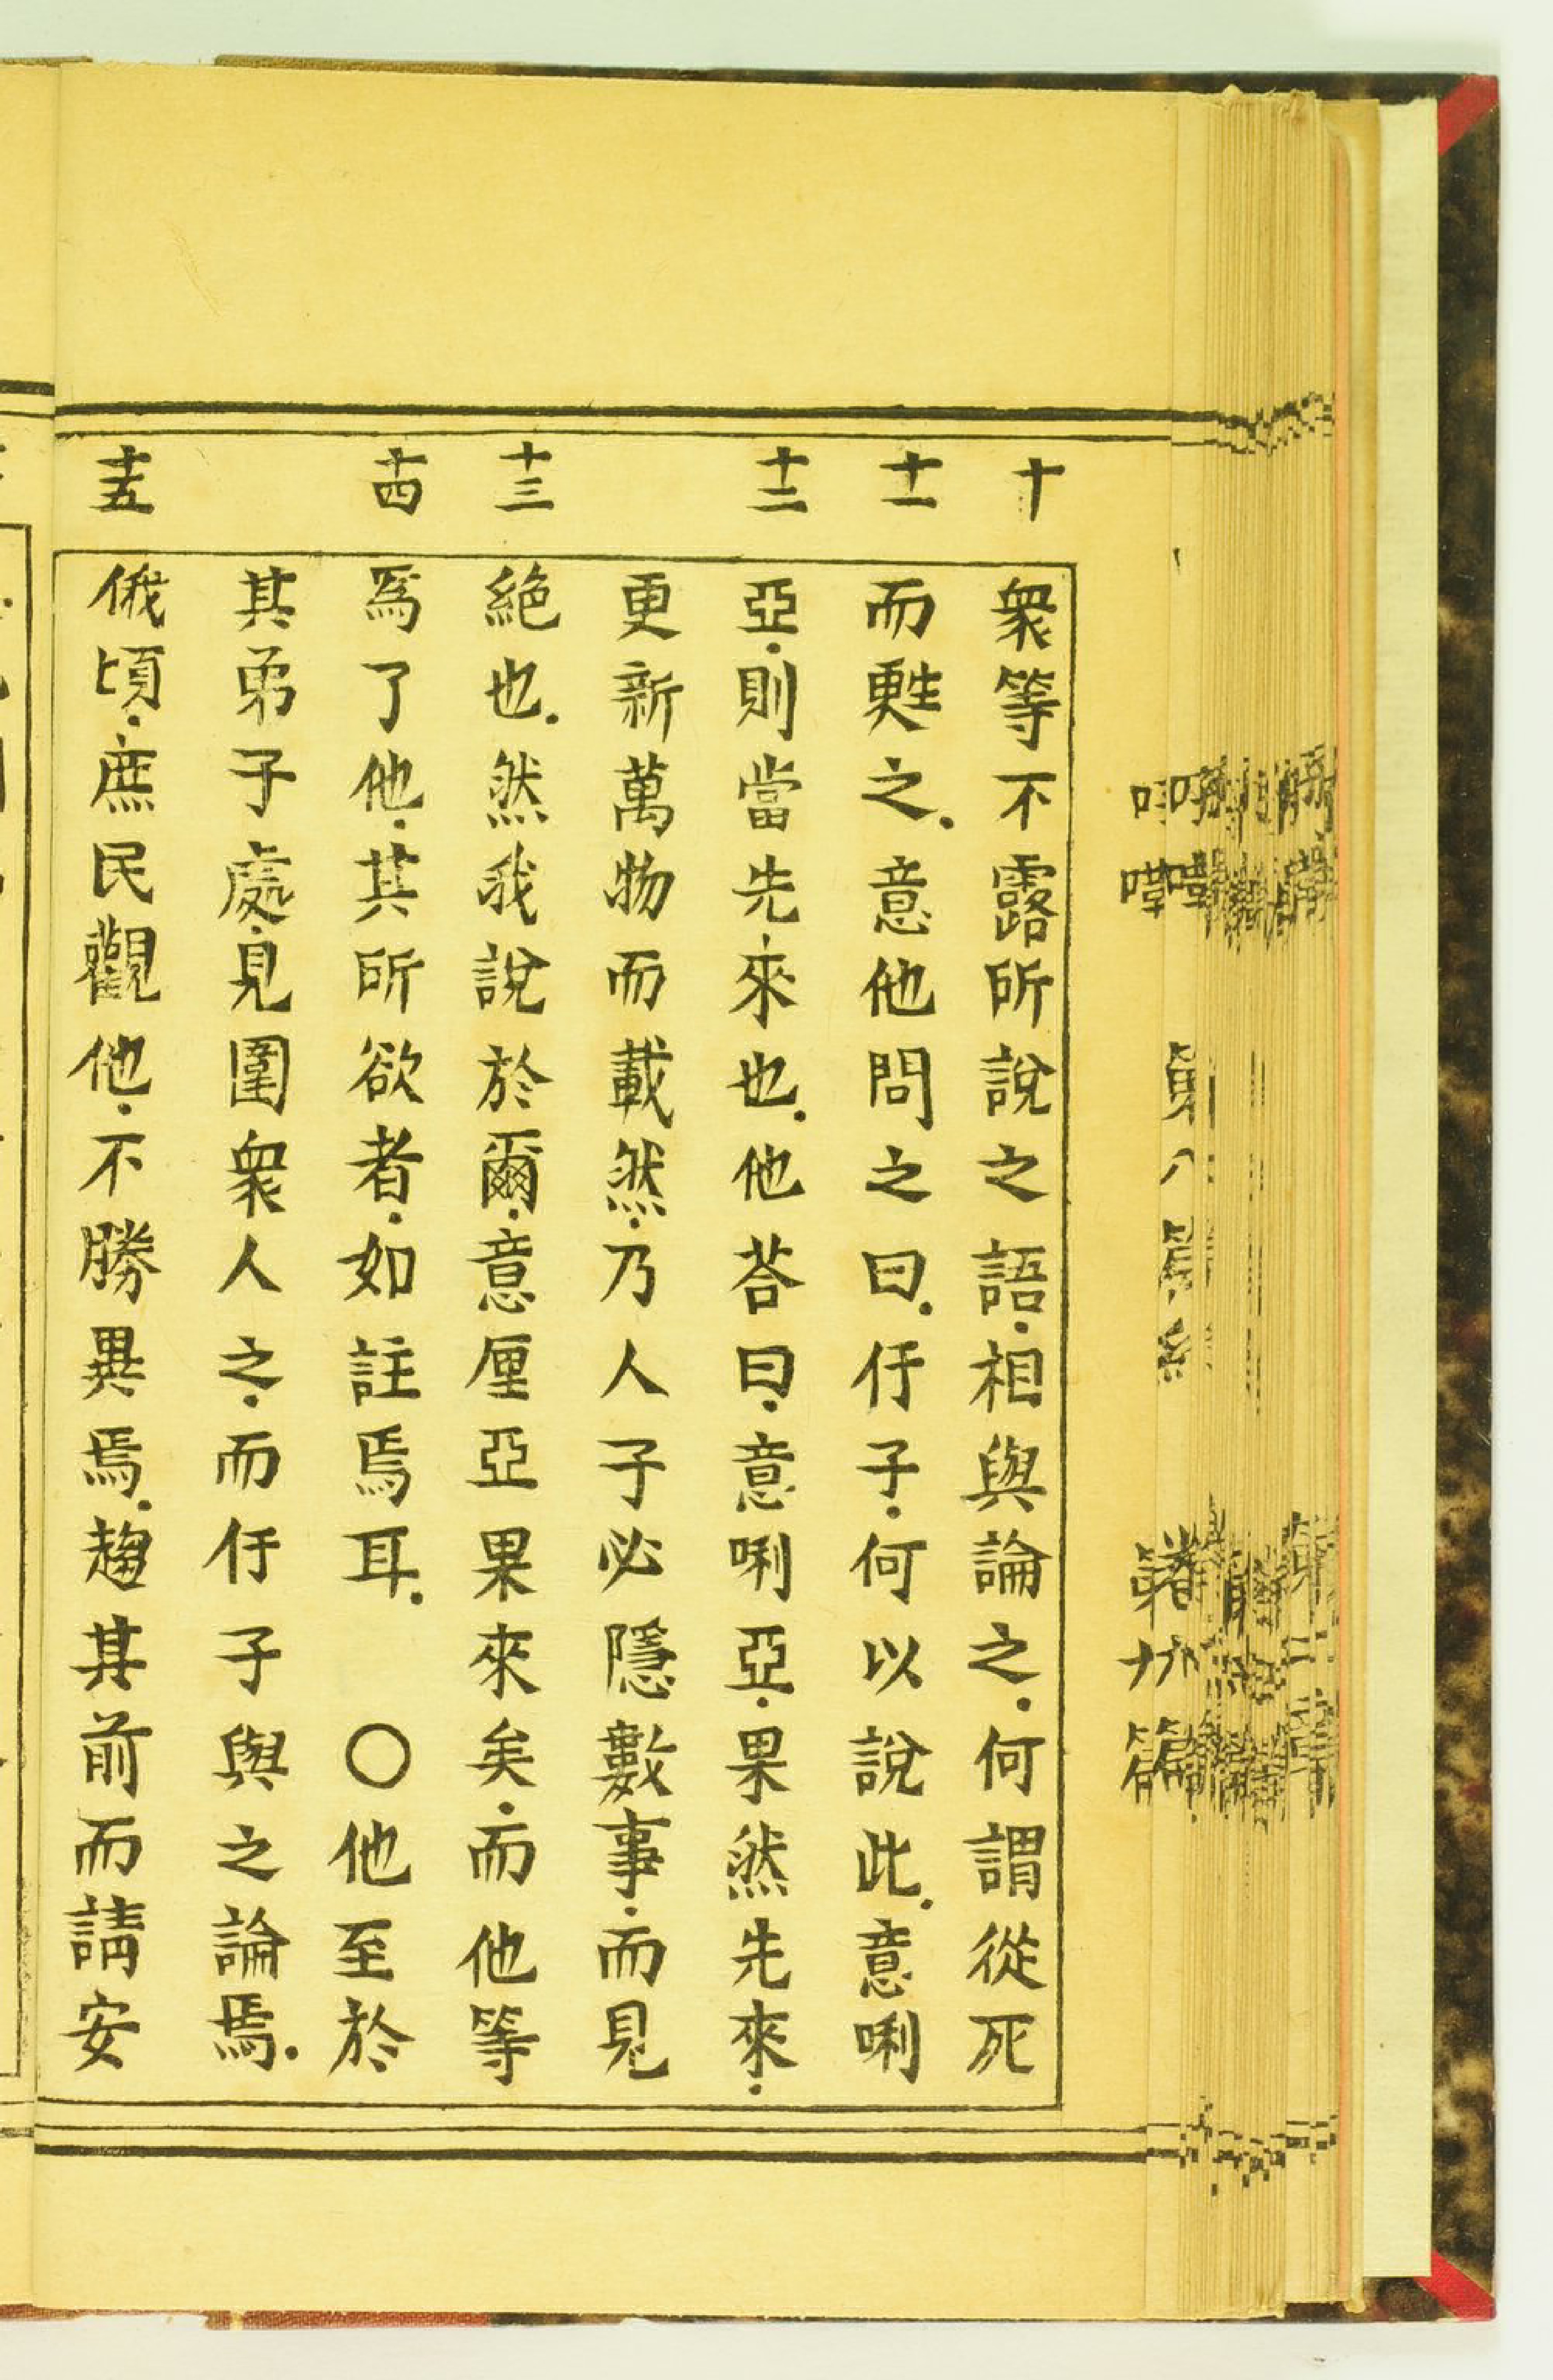 十 衆等不露所說之語.相與論之.何謂從死
十一 而甦之.意他問之曰.伃子.何以說此.意唎
十二 亞.則當先來也.他荅曰.意唎亞.果然先來.
更新萬物而載然.乃人子必隱數事.而見
十三 絕也.然我說於爾.意厘亞果來矣.而他等
十四 焉了他.其所欲者.如註焉耳.○他至於
其弟子處.見圍衆人之.而伃子與之論焉.
十五 俄頃.庶民觀他.不勝異焉.趨其前而請安